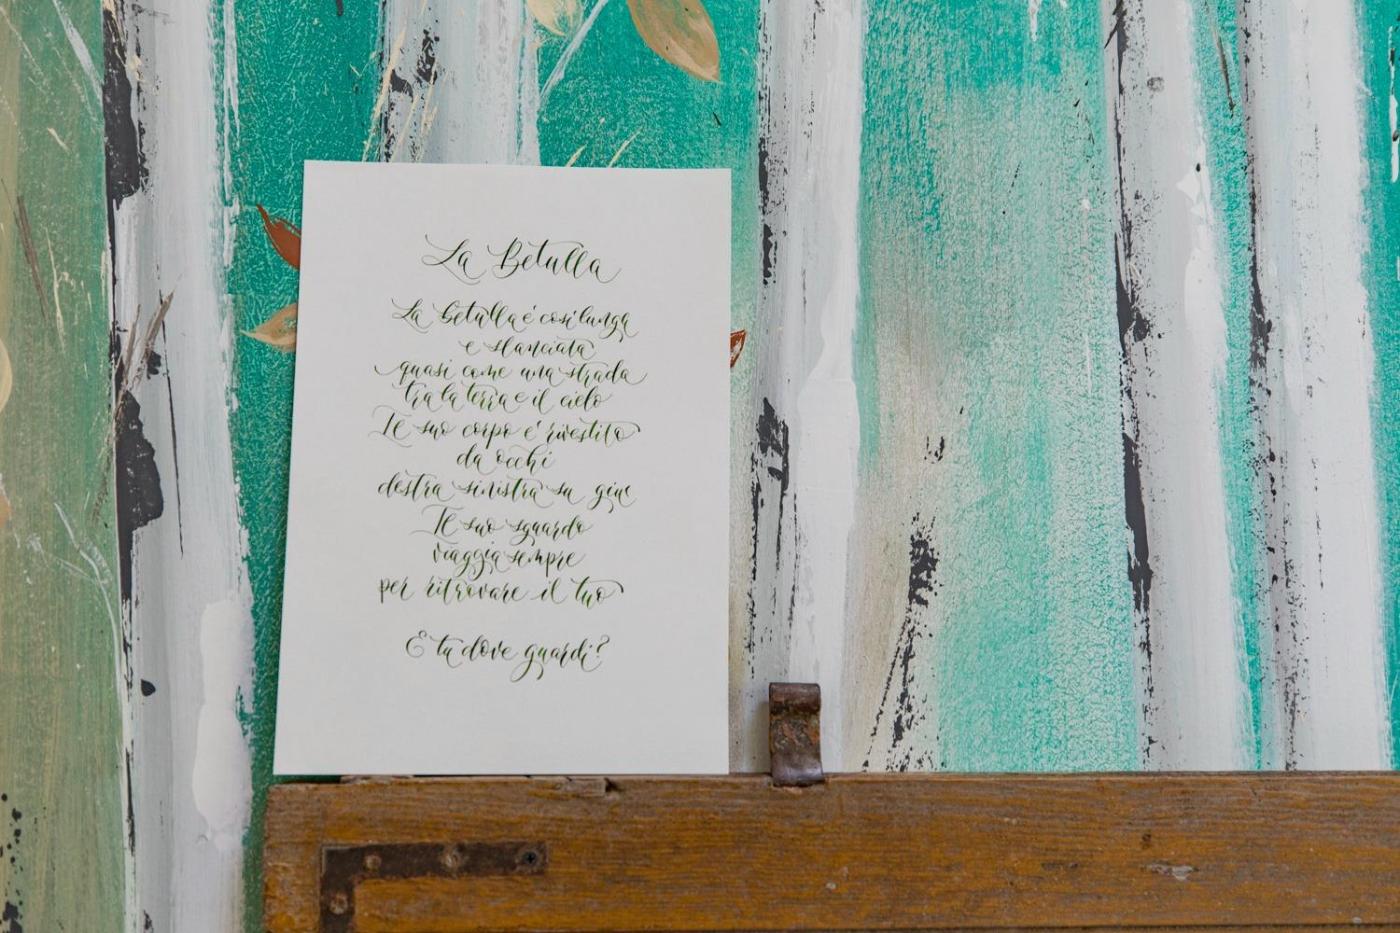 La Betulla
La betulla è così lunga
e slanciata
quasi come una strada
tra la terra e il cielo
Il suo corpo è rivestito
da occhi
destra sinistra su giù
Il suo sguardo
viaggia sempre
per ritrovare il tuo
E tu dove guardi?